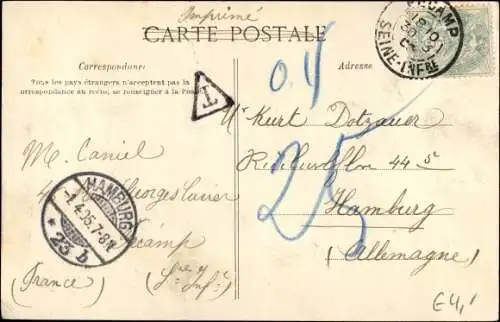 Imprimé
CARTE POSTALE
Correspondance
Adresse
Tous les pays étrangers n'acceptent pas la
correspondance au recto, se renseigner à la Poste
FÉCAMP
SEINE-INFRE
0.4
T
25
Mr Kurt Dotzauer
44 I
Hamburg
(Allemagne)
M. Caniel
4 Georges Cuvier
Fécamp
(France) (Sne Infre)
HAMBURG
-1.4.05.7-8N
* 23 b
E4,1